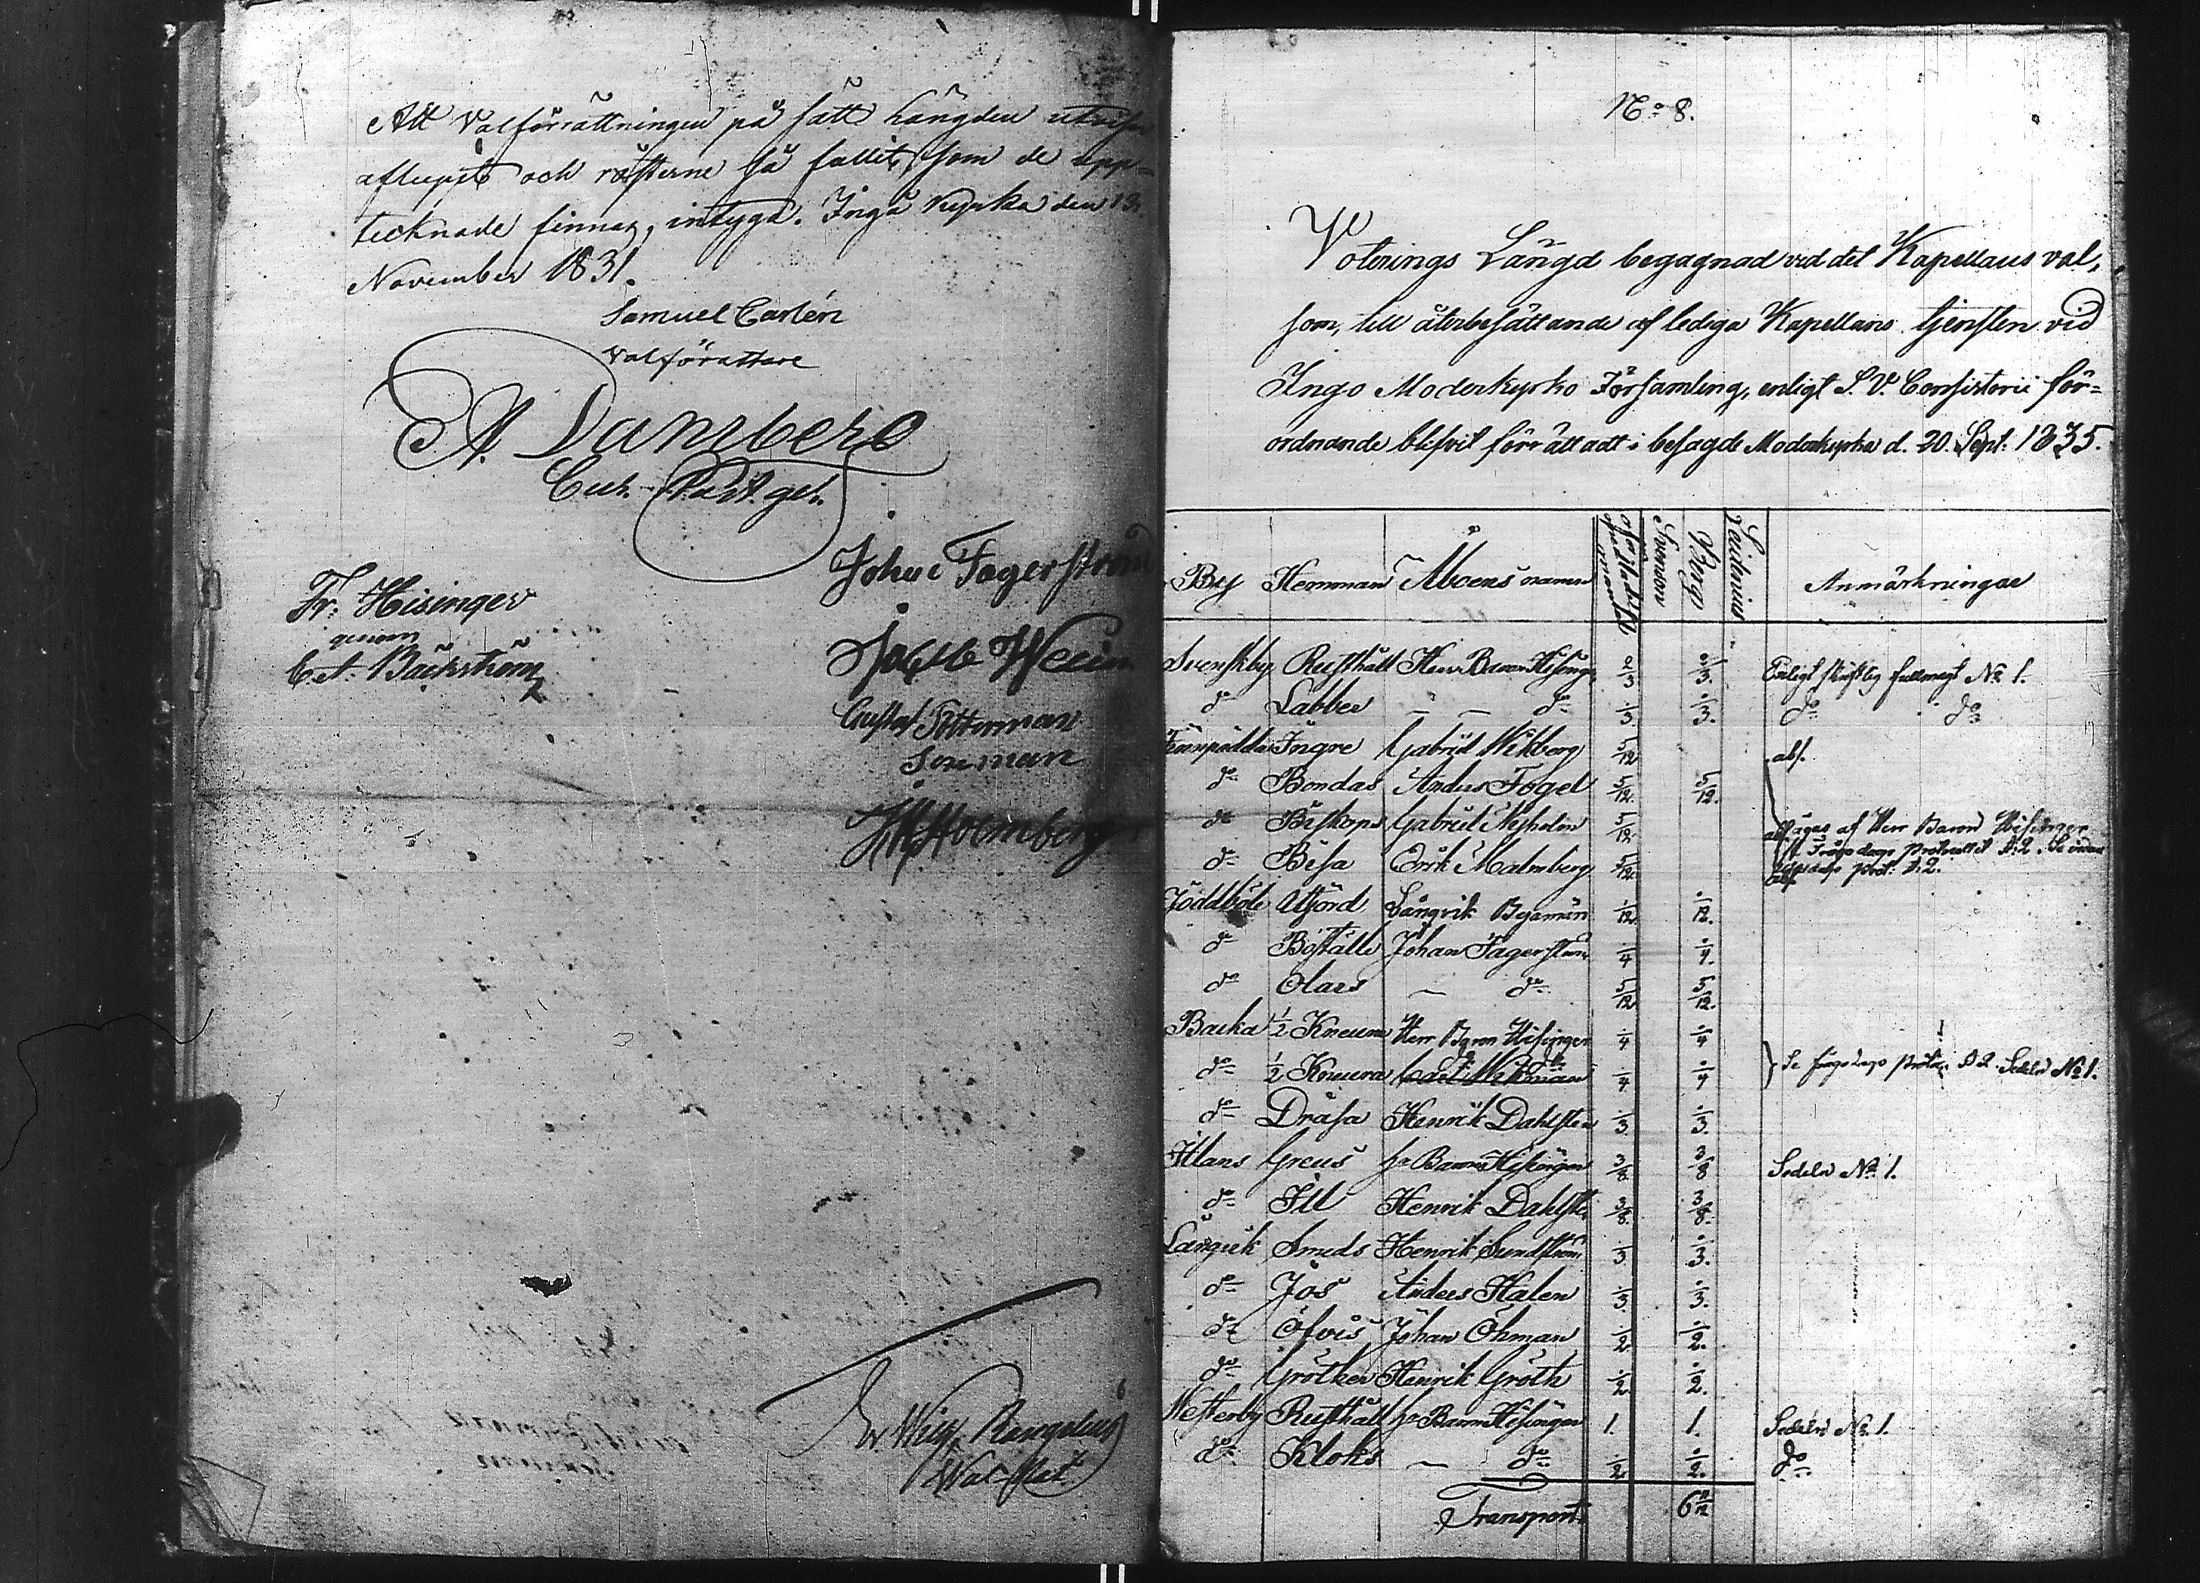 Att Valförrättningen på sätt Längden utvisar
aflupit och rösterne så fallit, som de upp-
tecknade finnas, intyga. Ingå Kyrka den 13.
November 1831.
Samuel Carlén
Valförättare
A. Damberg
Past.
Johan Fagerström
Fr: Hisinger
genom
C. A. Bäckström
Jacob
Gustaf Fotterman
Soneman
Holmberg
No 8.
Voterings Längd begagnad vid det Kapellans val,
som, till återbesättande af lediga Kapellans tjensten vid
Ingo Moderkyrko Församling, enligt S. V. Consistorii för-
ordnande blifvit förrättadt i besagde Moderkyrka d. 20. Sept: 1835.
By Hemman Åboens namn Forsman Berg Anmärkningar
Svenskby Rusthåll Herr Baron Hisinger 2/3 2/3. Enligt skriftlig fullmagt No 1.
do Labber — — do 1/3 1/3. do do
Ingre Gabriel Wikberg 5/12 abs.
do Bondas Anders Fogel 5/12 5/12.
do Biskops Gabriel 5/12 äges af Herr Baron Hisinger
do Bisa Erik Malmberg 5/12 abs.
Joddböle Utfjord Långvik Benjamin 1/12 1/12.
do Böställe Johan Fagerström 1/4 1/4.
do Olars — do 5/12 5/12.
Backa 1/2 Kneura Herr Baron Hisinger 1/4 1/4
do 1/2 Kneura Carl Wikman 1/4 1/4 Sedeln No 1.
do Dräsa Henrik Dahlsten 1/3 1/3.
Illans Greus Hr Baron Hisinger 3/8 3/8 Sedeln No 1.
do Ill Henrik Dahlsten 3/8 3/8.
Långvik Smeds Henrik Sundström 1/3 1/3.
do Jös Anders Halen 1/3 1/3.
do Öfvis Johan Öhman 1/2 1/2.
do Grötker Henrik Gröth 1/2 1/2.
Westerby Rusthåll Hr Baron Hisinger 1. 1. Sedeln No 1.
do Kloks — do 1/2 1/2. do
Transport 6 11/12